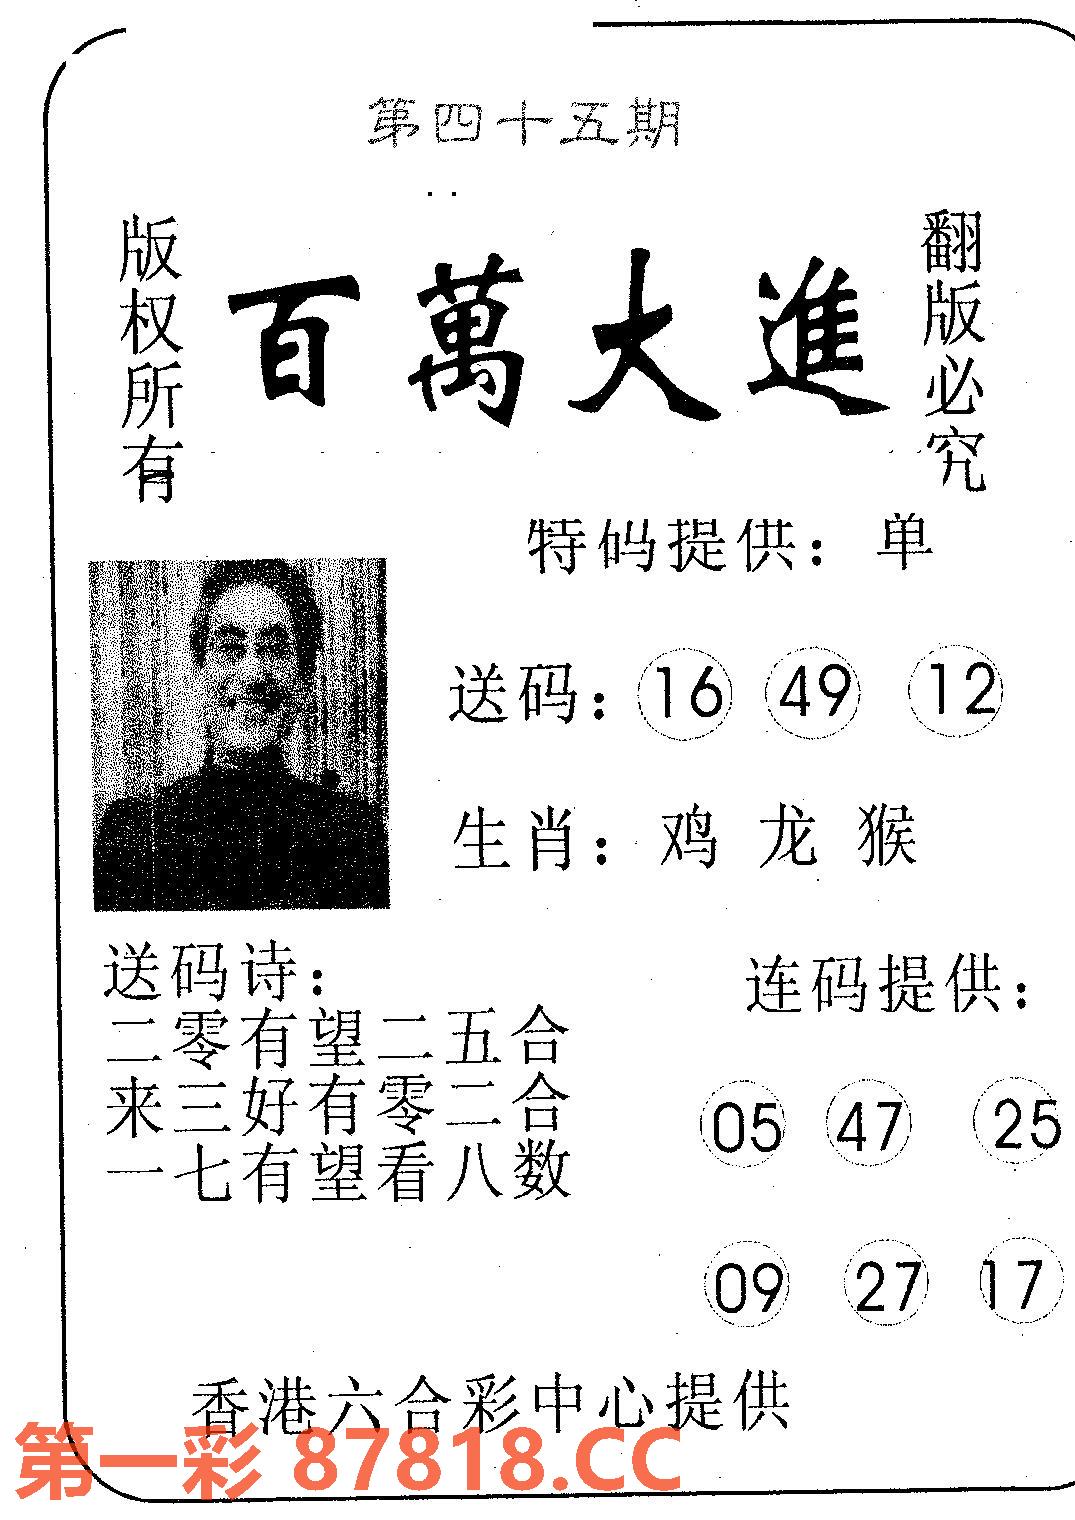 第四十五期
版权所有
百萬大進
翻版必究
特码提供：单
送码：16 49 12
生肖：鸡 龙 猴
送码诗：
二零有望二五合
来三好有零二合
一七有望看八数
连码提供：
05 47 25
09 27 17
香港六合彩中心提供
第一彩 87818.CC